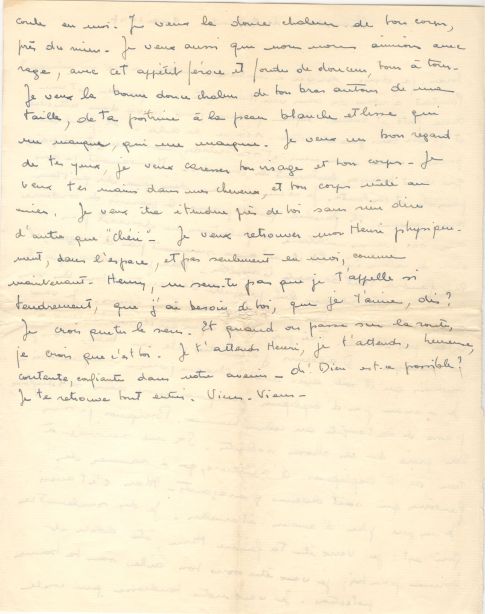 coule en moi. Je veux la douce chaleur de ton corps,
près du mien. Je veux aussi que nous nous aimions avec
rage, avec cet appétit féroce et de douceur, tour à tour.
Je veux la bonne douce chaleur de ton bras autour de ma
taille, de ta poitrine à la peau blanche et lisse qui
me manque, qui me manque. Je veux un bon regard
de tes yeux, je veux caresser ton visage et ton corps - Je
veux tes mains dans mes cheveux, et ton corps mêlé au
mien. Je veux être étendue près de toi sans rien dire
d'autre que "Chéri" - Je veux retrouver mon Henri physique-
ment, dans l'espace, et pas seulement en moi, comme
maintenant - Henri, ne sens-tu pas que je t'appelle si
tendrement, que j'ai besoin de toi, que je t'aime, dis ?
Je crois que tu le sens. Et quand on passe sur la route,
je crois que c'est toi. Je t'attends Henri, je t'attends, heureuse,
contente, confiante dans notre avenir - Dieu est-ce possible ?
Je te retrouve tout entier. Viens - Viens -